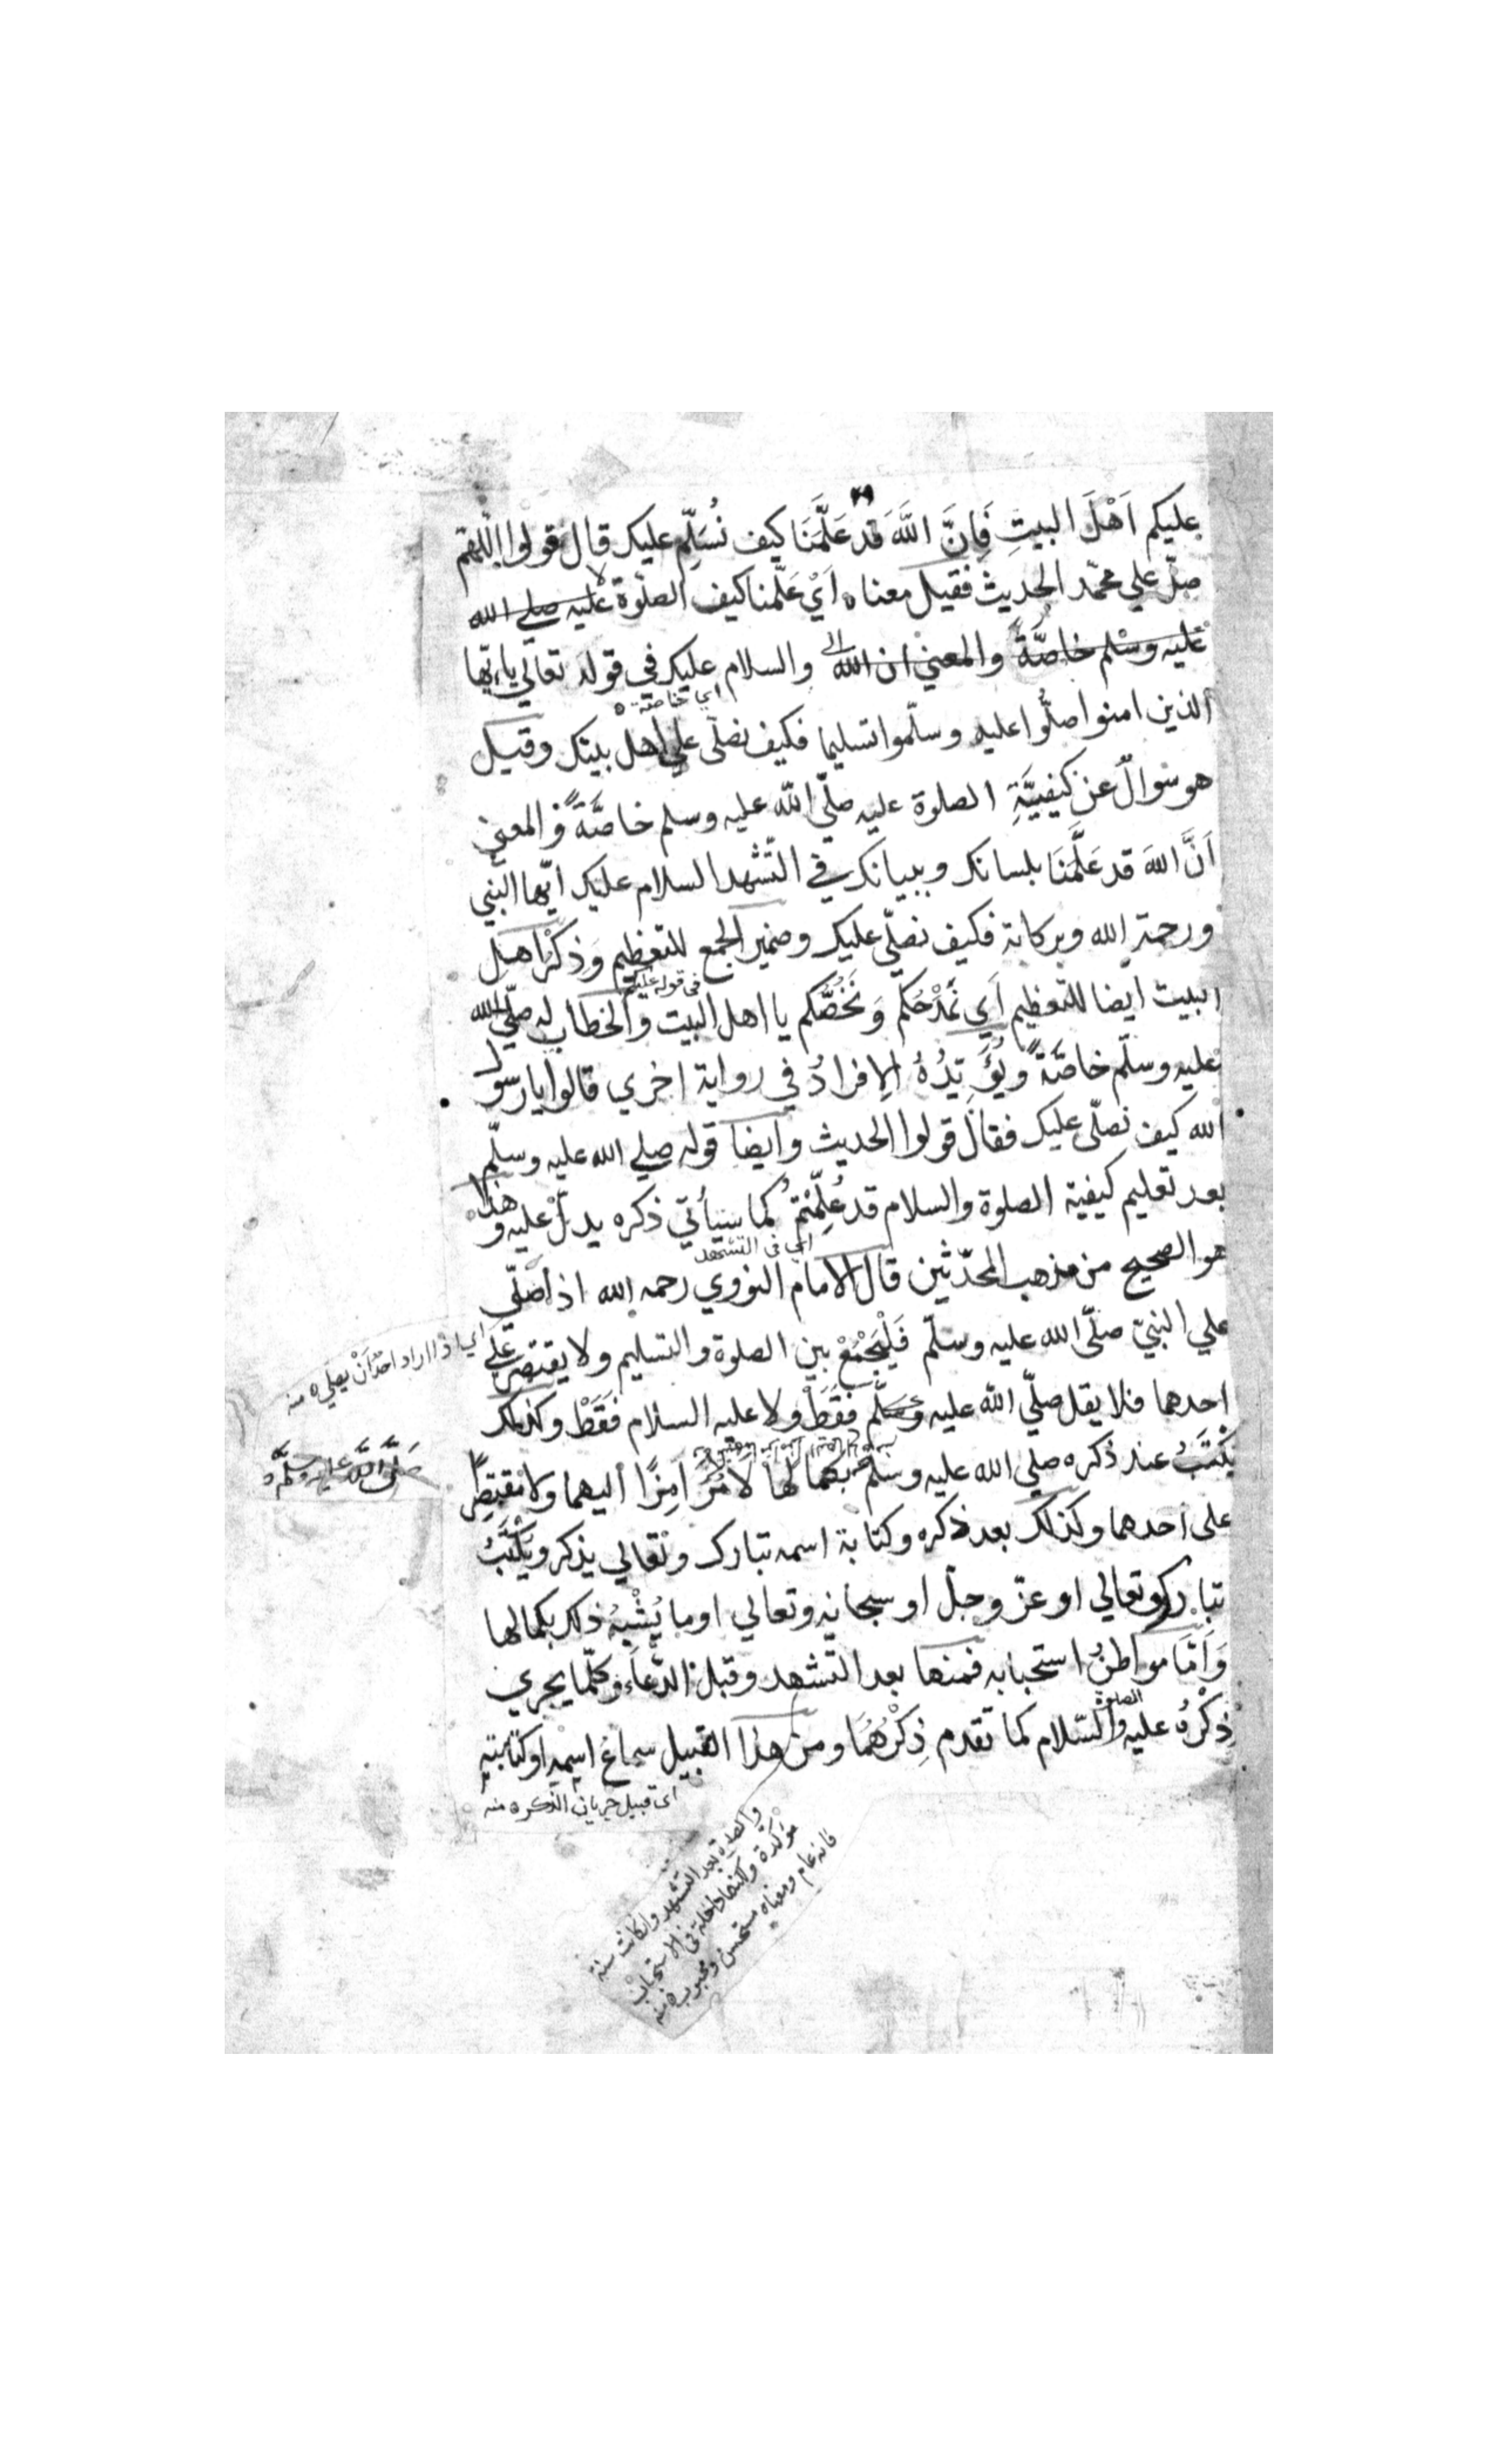 عليكم اَهْلَ البيتِ فَاِنَّ اللَّهَ قد عَلَّمَنَا كيف نُسَلِّم عليك قال قولوا اللّهمّ
صلّ علي محمّد الحديث فقيل معناه اَيْ عَلّمنا كيف الصلوة عليه صلي الله
عليه وسلم خاصَّةً والمعني ان الله والسلام عليك في قوله تعالي ياءيّها
الذين امنوا صلُّوا عليه وسلّموا تسليما فكيف نصلّي علي اهل بيتك وقيل
اي خاصة
هو سٶالٌ عن كيفيَّةِ الصلوة عليه صلّي اللّه عليه وسلم خاصَّةً والمعني
اَنَّ اللّهَ قد عَلَّمَنَا بلسانك وببيانك في التّشهد السلام عليك ايّها النّبي
ورحمة الله وبركاته فكيف نصلّي عليك وضمير الجمع للتعظيم وَذِكْرُ اهل
البيت ايضا للتعظيم اَي نَمْدَحُكم وَنَخُصُّكم يا اهل البيت والخطاب له صلّي الله
في قوله عليكم
عليه وسلّم خاصَّة ويُؤَيّدُهُ الافرادُ في رواية اخري قالوا يا رسول
الله كيف نصلّي عليك فقال قولوا الحديث وايضا قوله صلي الله عليه وسلّم
بعد تعليم كيفية الصلوة والسلام قد عُلِّمْتم كما سيأتي ذكره يدلّ عليه وهذا
اي في التشهد
هو الصحيح من مذهب المحدّثين قال الامام النووي رحمه الله اذا صلّي
علي النبيّ صلّي الله عليه وسلّم فَلْيَجْمَعْ بين الصلوة والتسليم ولا يقتصر علي
اي اذا اراد احدٌ اَنْ يصلي ه منه
احدهما فلا يقل صلّي اللّه عليه وسلّم فقَطْ ولا عليه السلام فَقَطْ وكذلك
يُكْتَبُ عند ذكره صلي الله عليه وسلم بكمالها لا مُرَامِزًا اليهما ولا مقتصِرًا
صَلَّى اللَّهُ عليه وسلَّم ه
على احدهما وكذلك بعد ذكره وكتابة اسمه تبارك وتعالي يذكر ويُكْتَبُ
تبارك وتعالي او عزّ وجلّ او سبحانه وتعالي او ما يُشْبِهُ ذلك بكمالها
وَاَمَّا مواطنُ استحبابه فمنها بعد التّشهد وقبل الدُّعاَء وكلّما يجري
ذِكْرُهُ عليه الصلوة والسّلام كما تقدم ذِكْرُهُمَا ومن هذا القبيل سماع اسمِه او كتابتِه
اى قبيل جريان الذكر ه منه
والصلوة بعد التشهد وان كانت سنة
مؤكدة ولكنها داخلة في الاستحباب
فانه عام ومعناه مستحسن ومحبوب ه منه